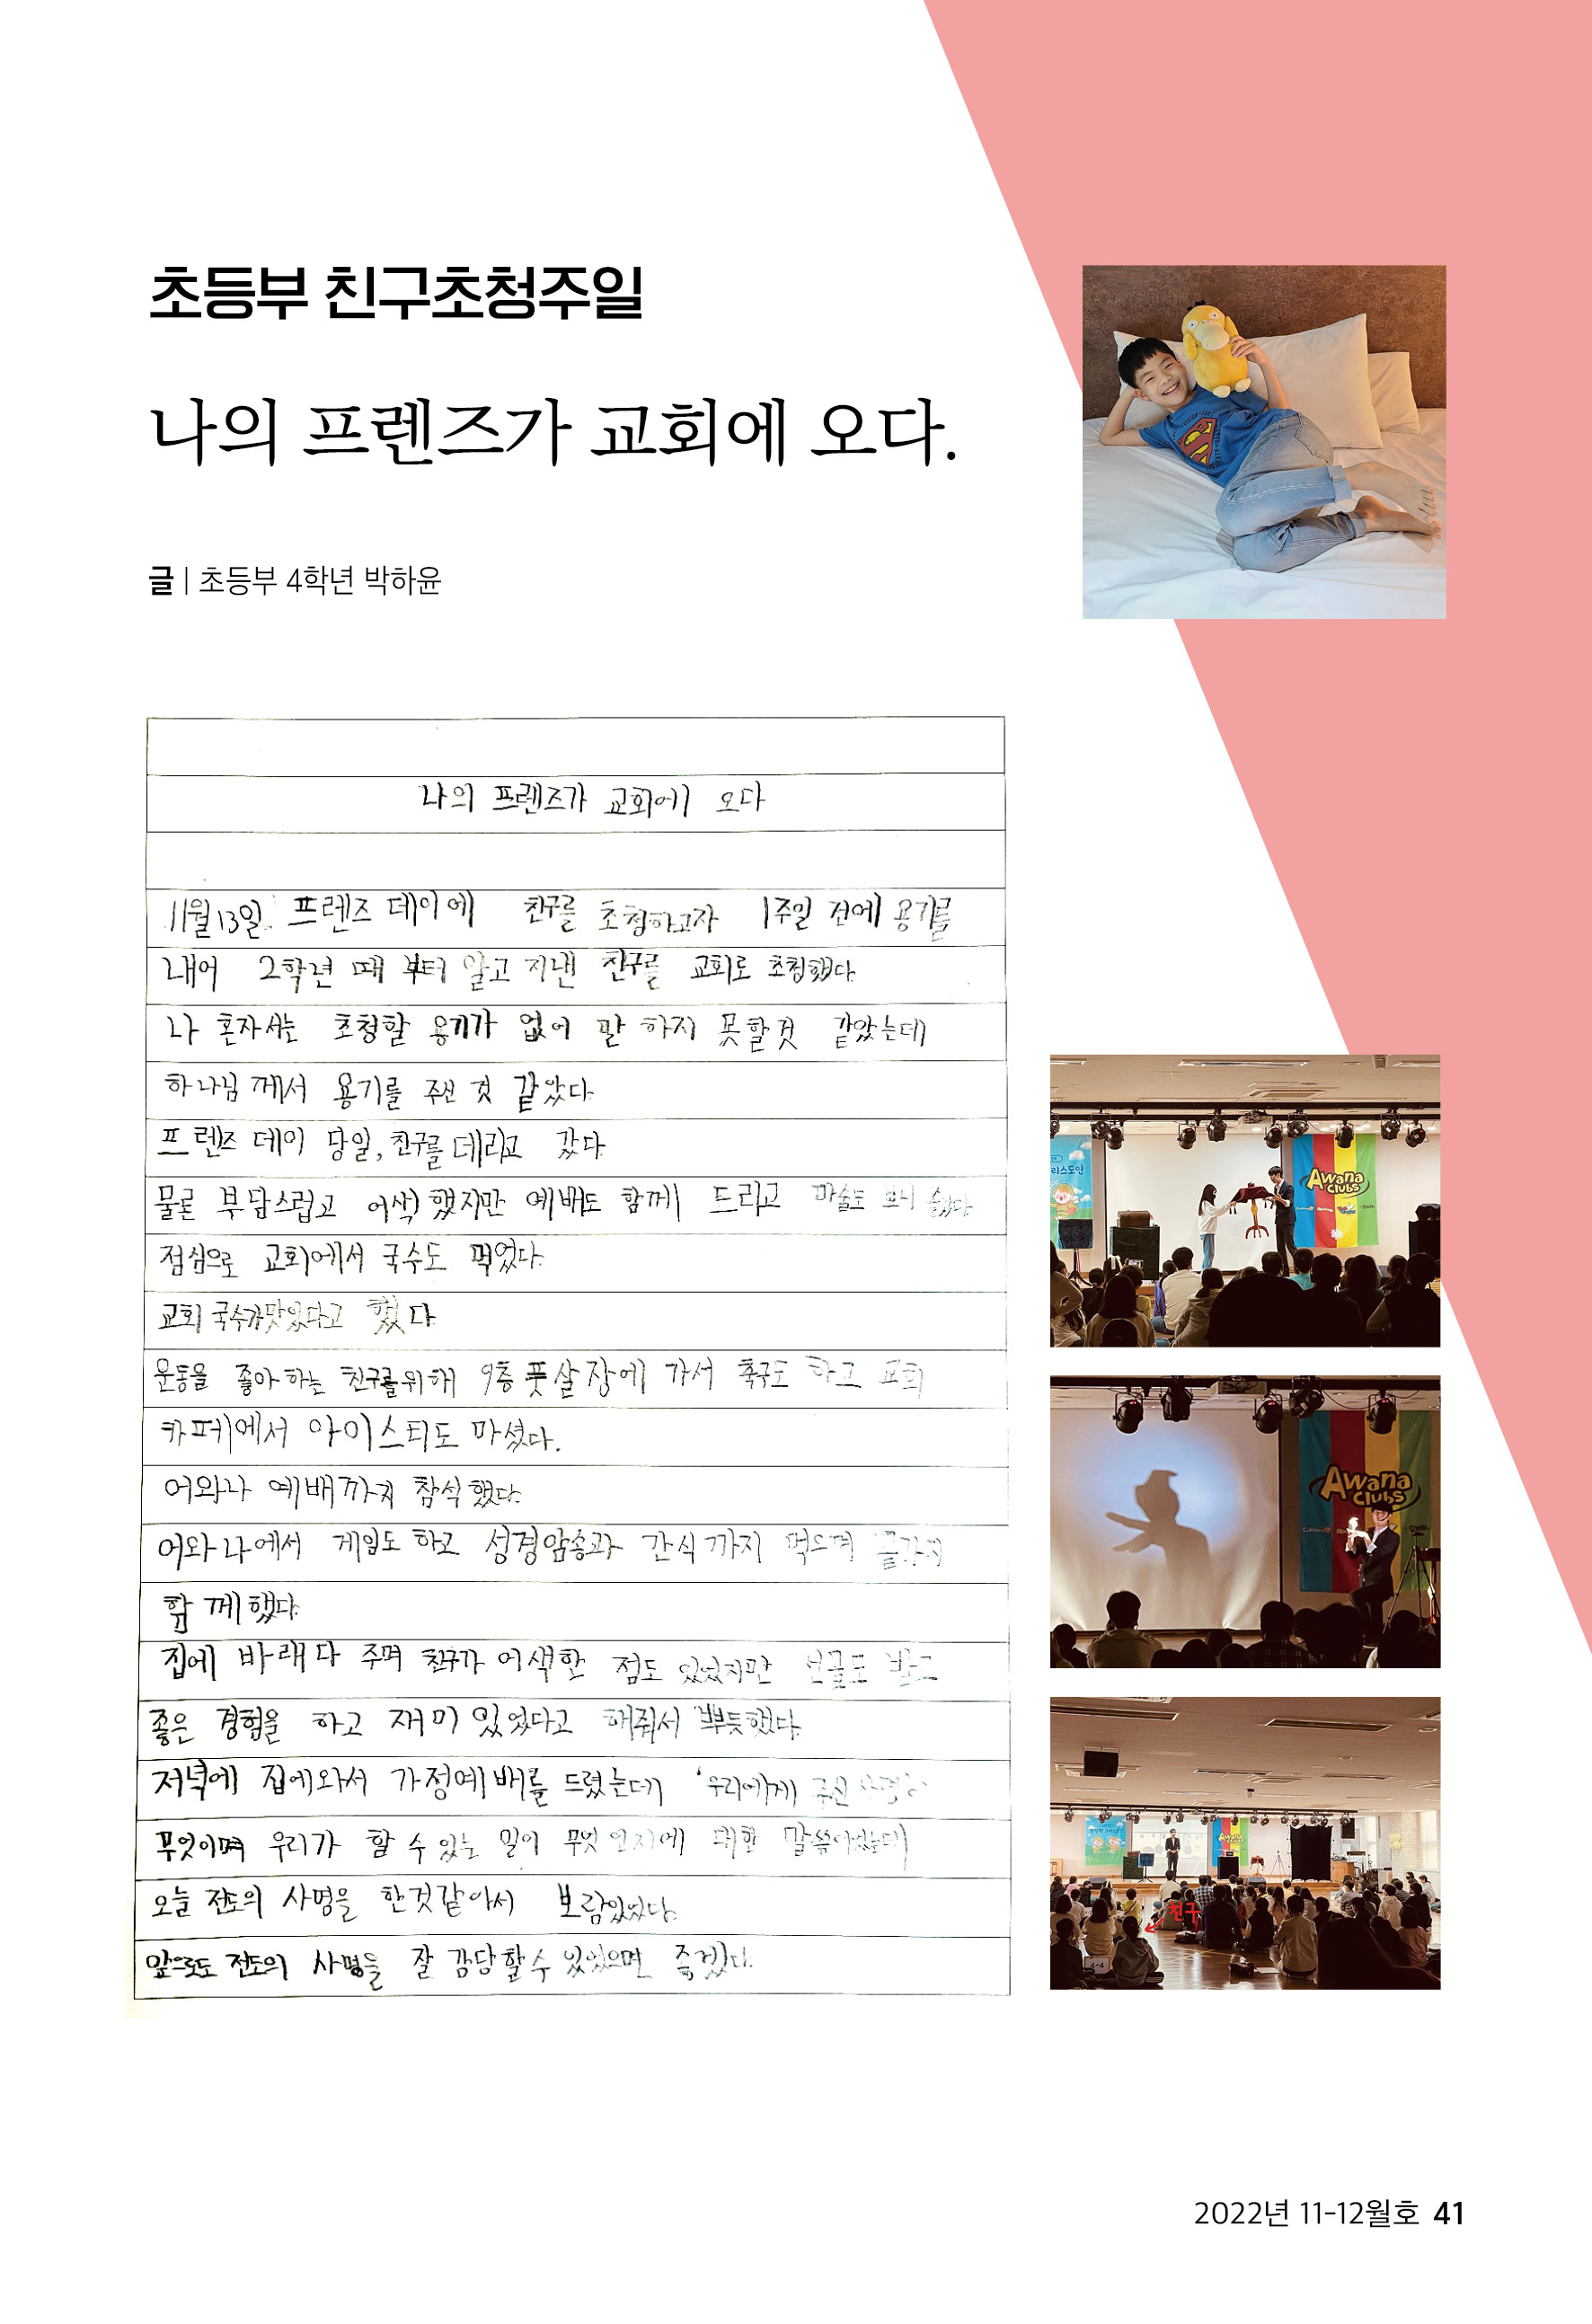 초등부 친구초청주일
나의 프렌즈가 교회에 오다.
글 | 초등부 4학년 박하윤
나의 프렌즈가 교회에 오다
11월 13일. 프렌즈 데이에 친구를 초청하고자 1주일 전에 용기를
내어 2학년 때 부터 알고 지낸 친구를 교회로 초청했다.
나 혼자서는 초청할 용기가 없어 말 하지 못할것 같았는데
하나님 께서 용기를 주신 것 같았다.
프렌즈 데이 당일, 친구를 데리고 갔다.
물론 부담스럽고 어색 했지만 예배도 함께 드리고 마술도 보니
점심으로 교회에서 국수도 먹었다.
교회 국수가 맛있다고 했다.
운동을 좋아 하는 친구를 위해 9층 풋살장에 가서 축구도 하고 교회
카페에서 아이스티도 마셨다.
어와나 예배까지 참석했다.
어와나에서 게임도 하고 성경암송과 간식까지 먹으며 끝까지
함께했다.
집에 바래다 주며 친구가 어색한 점도 있었지만 선물도 받고
좋은 경험을 하고 재미 있었다고 해줘서 뿌듯했다.
저녁에 집에와서 가정예배를 드렸는데 '우리에게 주신 사명이
무엇이며 우리가 할 수 있는 일이 무엇 인지에 대한 말씀이었는데
오늘 전도의 사명을 한것같아서 보람있었다.
앞으로도 전도의 사명을 잘 감당할수 있었으면 좋겠다.
리스도인
Awana
Clubs
Awana
Clubs
Awana
Clubs
친구
4-4
2022년 11-12월호 41